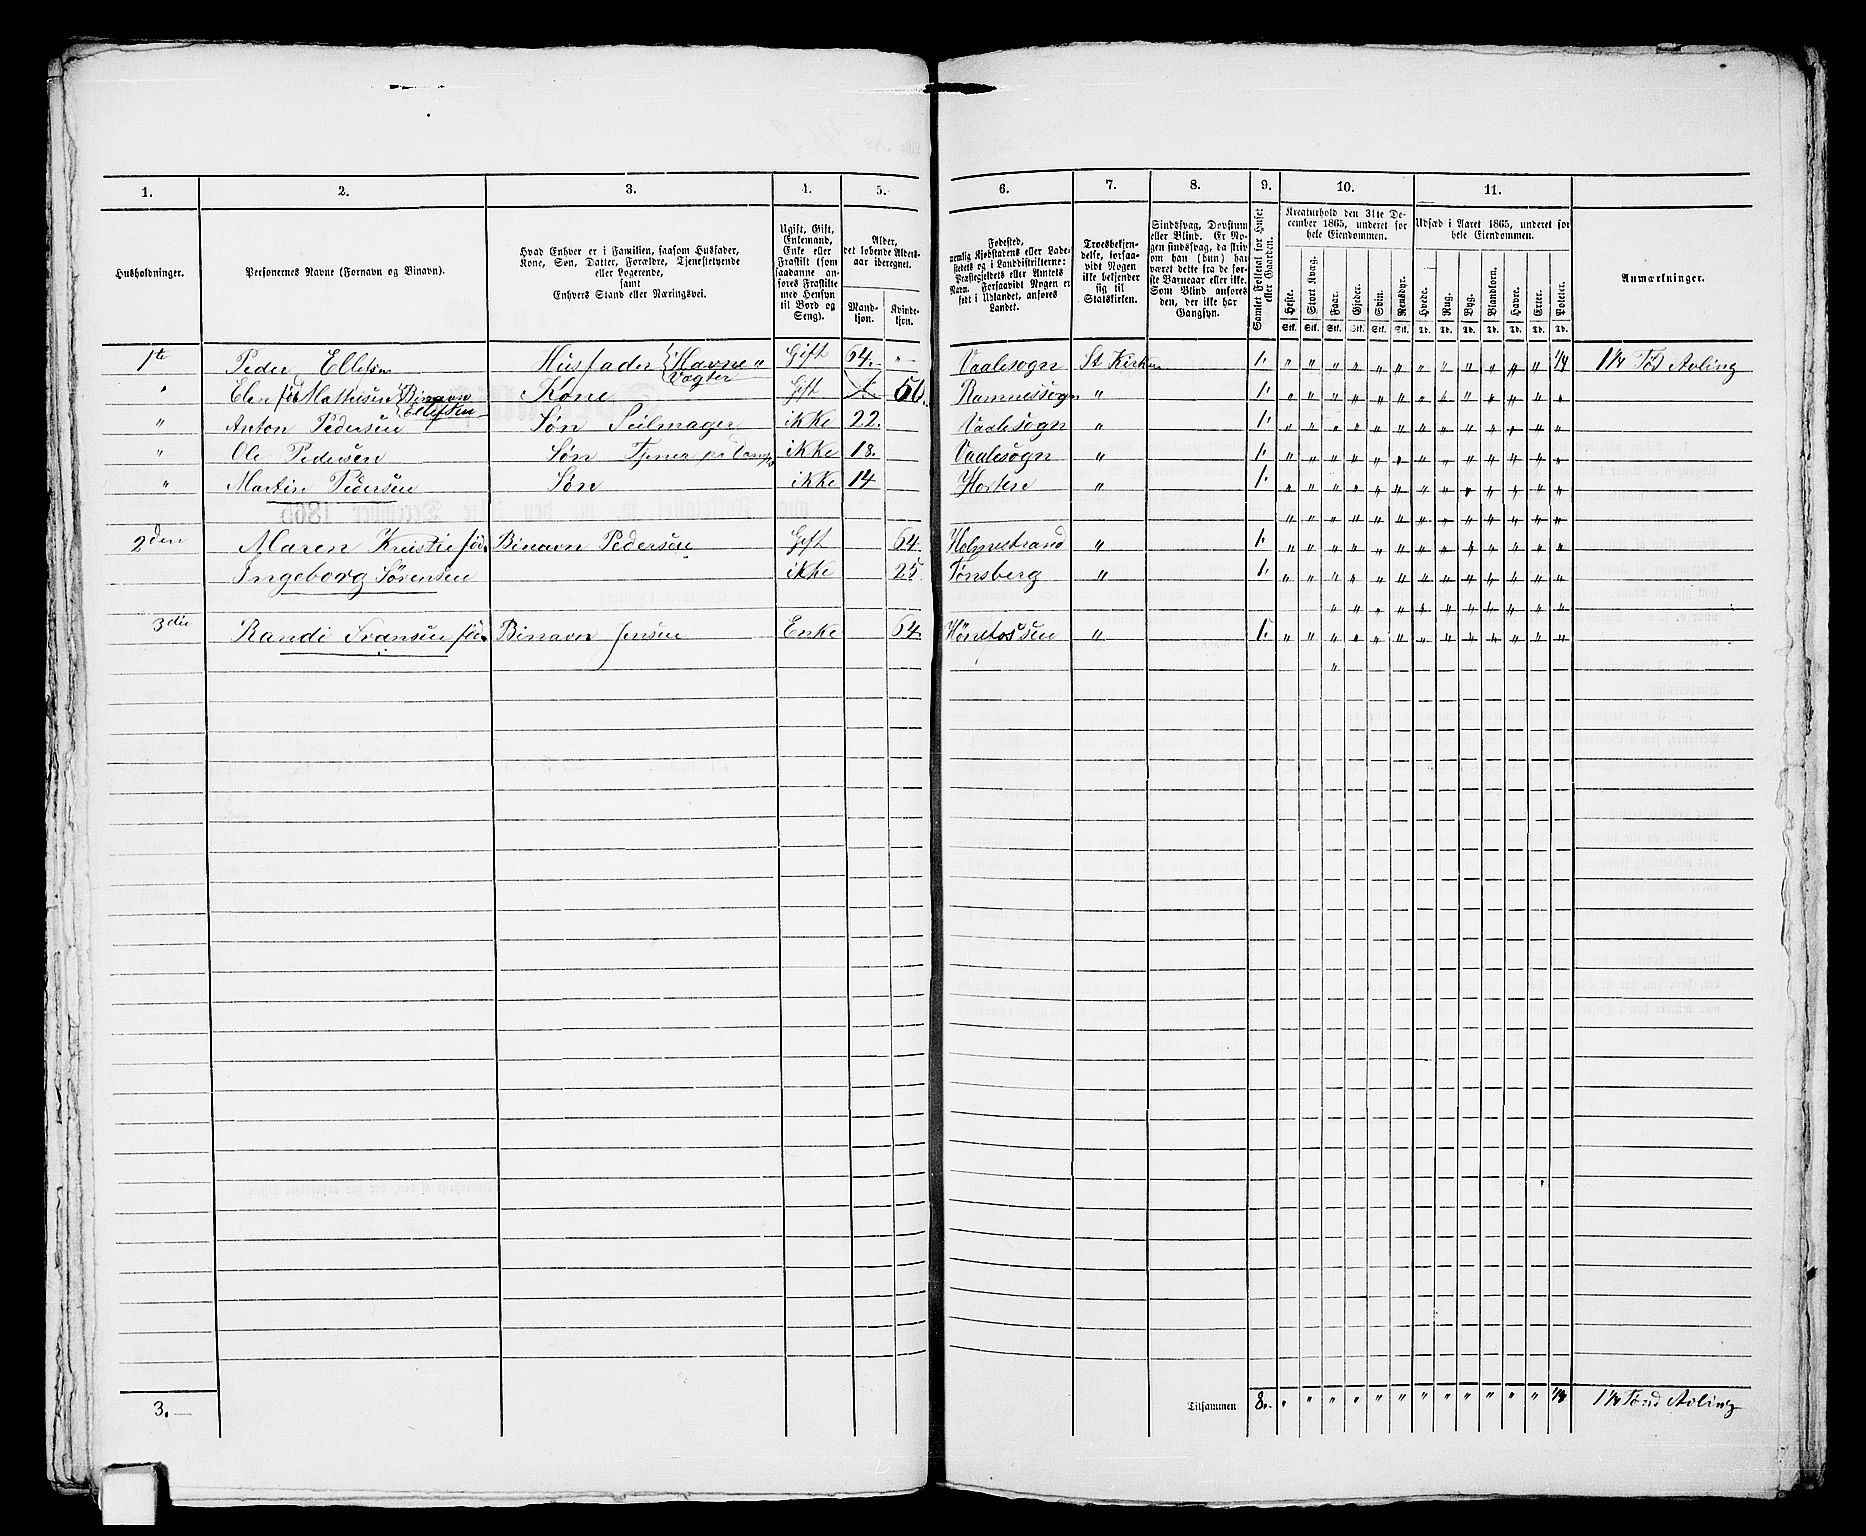 1. 2. 3. 4. 5. 6. 7. 8. 9. 10. 11.
Husholdninger.
Personernes Navne (Fornavn og Binavn).
Hvad Enhver er i Familien, saasom Husfader,
Kone, Søn, Datter, Forældre, Tjenestetyende
eller Logerende,
samt
Enhvers Stand eller Næringsvei.
Ugift, Gift,
Enkemand,
Enke eller
Fraskilt (som
saadanne an-
føres Fraskilte
med Hensyn
til Bord og
Seng).
Alder,
det løbende Alders-
aar iberegnet.
Mand-
kjøn.
Kvinde-
kjøn.
Fødested,
nemlig Kjøbstadens eller Lade-
stedets og i Landdistrikterne:
Præstegjeldets eller Amtets
Navn. Forsaavidt Nogen er
født i Udlandet, anføres
Landet.
Troesbekjen-
delse, forsaa-
vidt Nogen
ikke bekjender
sig til
Statskirken.
Sindssvag, Døvstum
eller Blind. Er No-
gen sindssvag, da skriv
om han (hun) har
været dette fra de før-
ste Barneaar eller ikke.
Som Blind anføres
den, der ikke har
Gangsyn.
Samlet Folketal for Huset
eller Gaarden.
Kreaturhold den 31te De-
cember 1865, underet for
hele Eiendommen.
Heste. Stort Kvæg. Faar. Gjeder. Svin. Rensdyr.
Stk. Stk. Stk. Stk. Stk. Stk.
Udsæd i Aaret 1865, underet for
hele Eiendommen.
Hvede. Rug. Byg. Blandkorn. Havre. Erter. Poteter.
Td. Td. Td. Td. Td. Td. Td.
Anmærkninger.
1te Peder Ellefsen Husfader { Havne " Vagter Gift 64. " Vaalesogn St Kirken 1. " " " " " " " " " " " " 1/4 1 1/4 Tød Avling
" Elen fød Mattisen { Binavn Ellefsen Kone Gift 50. Ramnessogn " 1. " " " " " " " " " " " " "
" Anton Pedersen Søn Seilmager ikke 22. Vaalesogn " 1. " " " " " " " " " " " " "
" Ole Pedersen Søn Tjener på ikke 18. Vaalesogn " 1. " " " " " " " " " " " " "
" Martin Pedersen Søn ikke 14 Horten " 1. " " " " " " " " " " " " "
" " " " " " " " " " " " "
2den Maren Kristie fød. Binavn Pedersen Gift 64. Holmestrand " 1. " " " " " " " " " " " " "
Ingeborg Sørensen ikke 25 Tønsberg " 1. " " " " " " " " " " " " "
" " " " " " " " " " "
3die Randi Svansen fød. Binavn Jensen Enke 64. Hønefossen " 1. " " " " " " " " " " " " "
"
3. — Tilsammen 8. " " " " " " " " " " " " 1/4 1 1/4 Tønd Avling